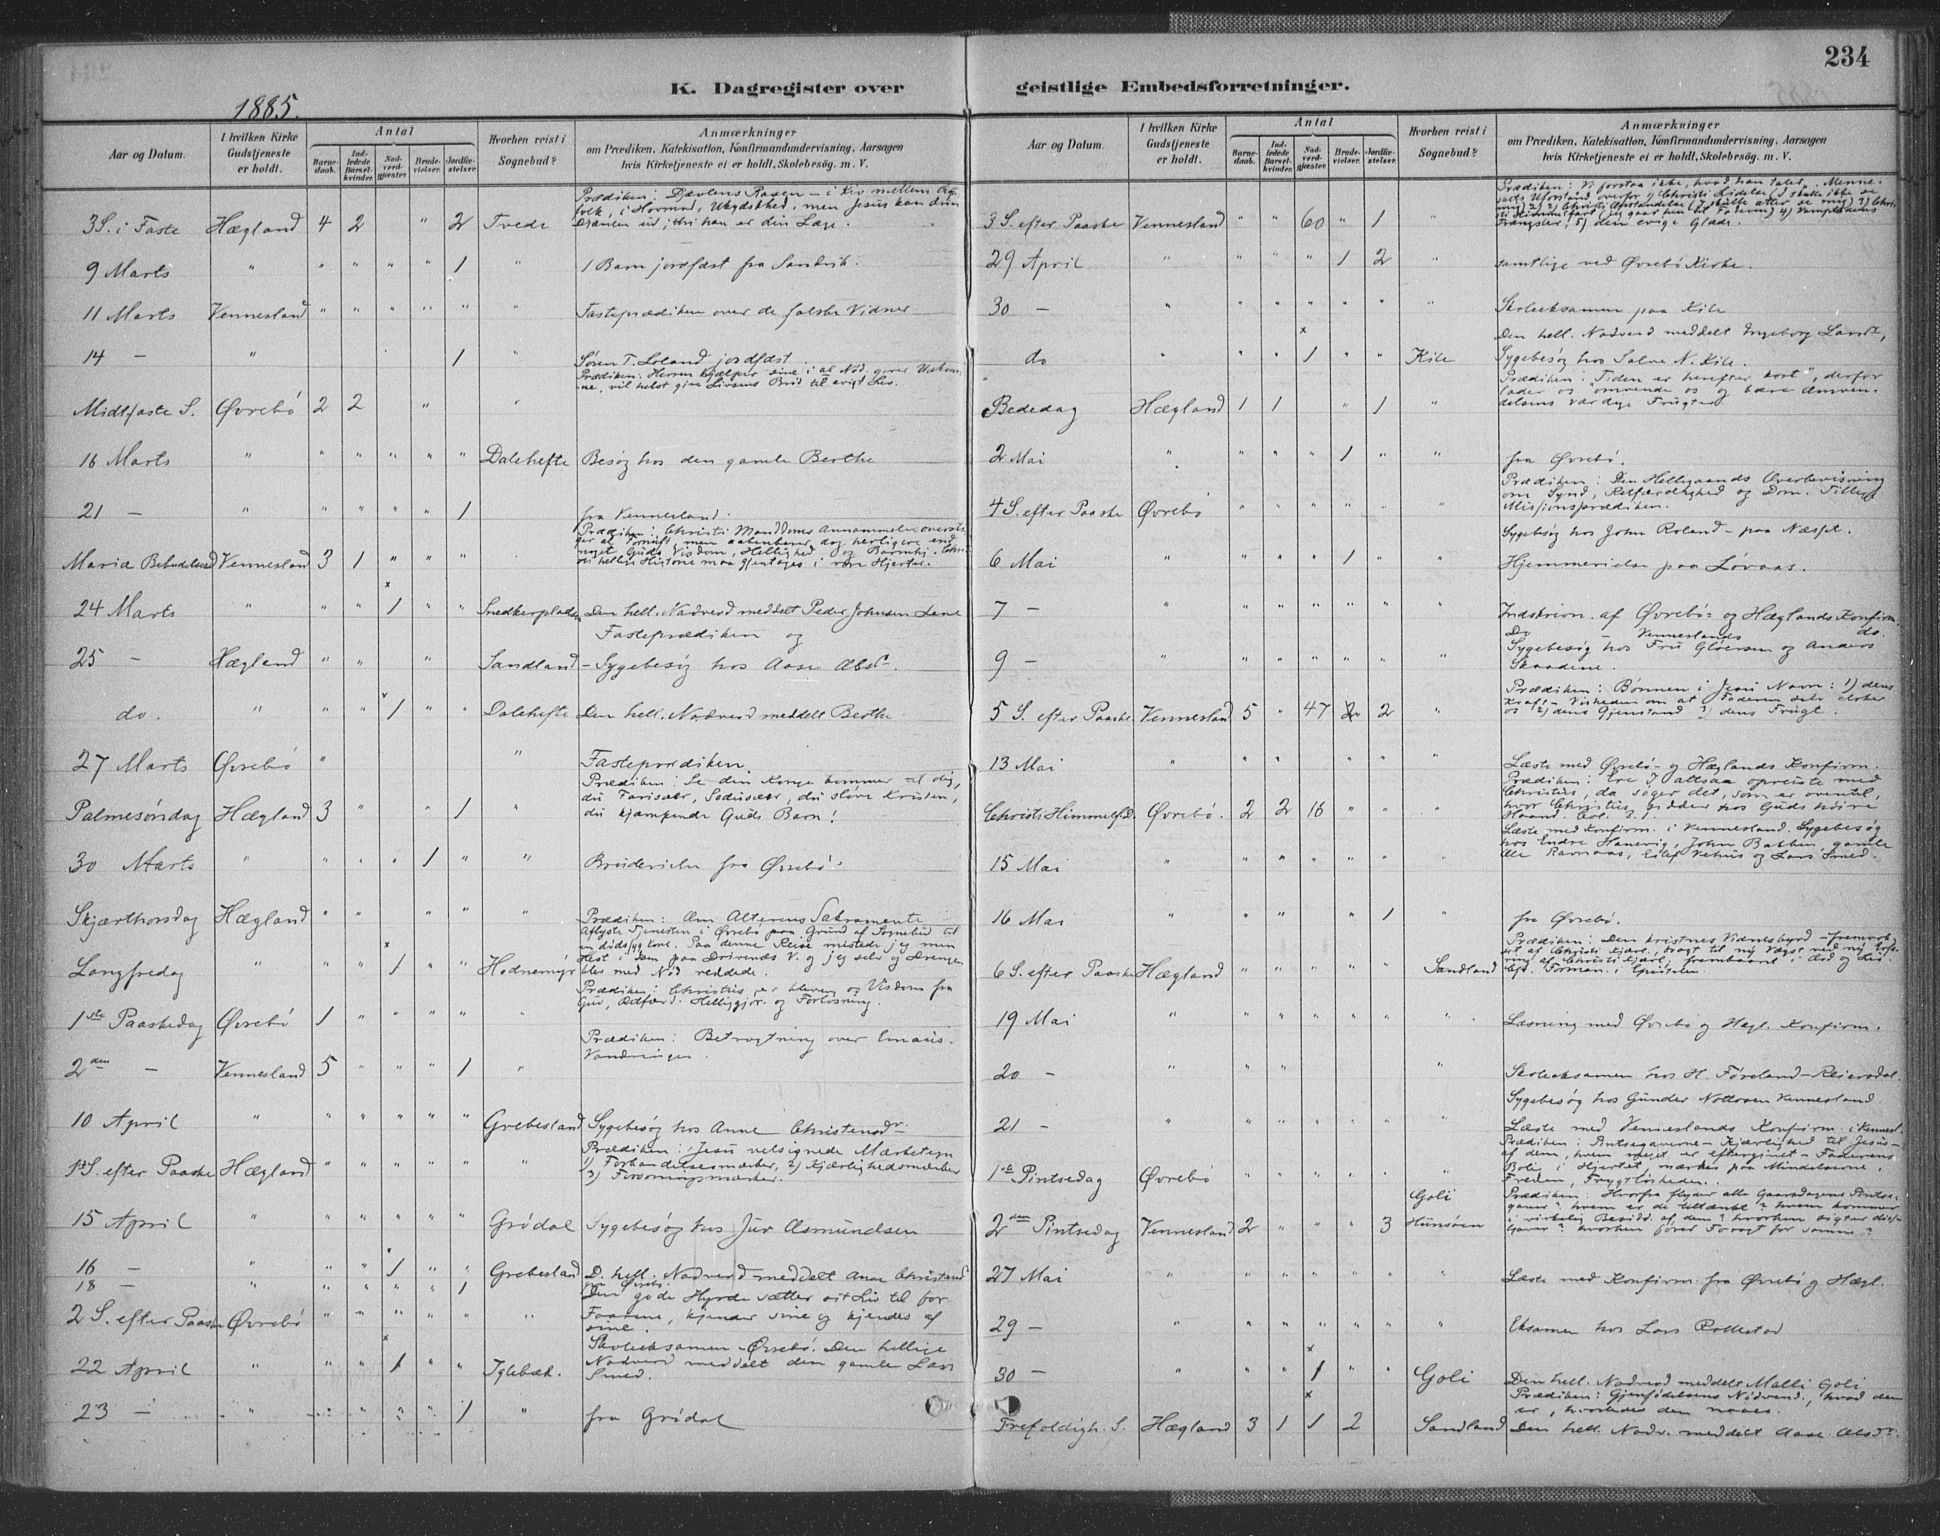 234
K. Dagregister over geistlige Embedsforretninger.
1885.
Aar og Datum. I hvilken Kirke Gudstjeneste er holdt. Antal Barnedaab. Indledede Barselkvinder. Nadverdgjester. Brudevielser. Jordfæstelser. Hvorhen reist i Sognebud? Anmærkninger om Prædiken, Katekisation, Konfirmandundervisning, Aarsagen hvis Kirketjeneste ei er holdt, Skolebesøg. m. V.
Prædiken: Djævlens Rasen – i Kiv mellem
folk, i Hovmod, Ukydskhed, men Jesus kan
3 S. i Faste Hægland 4 2 " 2 Tvede
9 Marts " " " " " 1 " 1 Barn jordfæst fra Sandvik.
11 Marts Vennesland " " " " " " Fasteprædiken over de falske Vidner.
14 – " 1 " Søren T. Loland jordfæst
Prædiken: Herren hjælper sine i al Nød, giver
vil helst give Livsens Brød til evigt Liv.
Midtfaste S. Øvrebø 2 2 " "
16 Marts " " " " " " Dalehefte Besøg hos den gamle Berthe
21 – " " " " " 1 fra Vennesland.
Prædiken: Christi
men aabenbarer dog herligere end
noget Guds Visdom, Hellighed og Barmhj.
hellige Historie maa gjentages i vore Hjerter.
Maria Bebudelsesd Vennesland 3 1 " " "
x
24 Marts " " " 1 " " Snedkerpladsen Den hell. Nadverd meddelt Peder Johnsen Lene
Fasteprædiken og
25 – Hægland " " " Sandland – Sygebesøg hos Aase Absd.
x
do. " " " 1 " " Dalehefte Den hell. Nadverd meddelt Berthe
27 Marts Øvrebø " " Fasteprædiken
Prædiken: Se din Konge kommer til dig,
du Farisæer, Sadusæer, du sløve Kristen,
Palmesøndag Hægland 3 " " 1 " du kjæmpende Guds Barn!
30 Marts " " " " 1 " " Brudevielse fra Øvrebø
Skjærthorsdag Hægland " " " " " Prædiken: Om Alterens Sakramente
Aflyste Tjenesten i Øvrebø paa Grund af Sognebud til
en dødssyg Kone. Paa denne Reise mistede jeg min
Hest i Isen paa Drivenes V. og jeg selv og Drengen
x
Langfredag " " " 1 " " Hodnemyr blev med Nød reddede.
Prædiken: Christus er bleven os Visdom fra
Gud, Retfærd. Helliggjør. og Forløsning.
1ste Paaskedag Øvrebø 1 " " " " "
Prædiken: Betragtning over Emaus-
Vandringen.
2den – Vennesland 5 " " " 1 "
10 April " " " " " " Grebesland Sygebesøg hos Anne Christensdr.
Prædiken: Jesu velsignede Mærketegn
1) Forhandelsesmærker, 2) Kjærlighedsmærker
1ste S. efter Paaske Hægland " " " " " " 3) Forsoningsmærker.
15 April " " " " " " Grødal Sygebesøg hos Jur Asmundsen
x
16 – " " " 1 " " Grebesland D. hell. Nadverd meddelt Anne Christensd
18 – " " " " " 1 fra Øvrebø.
Den gode Hyrde sætter sit Liv til for
2 S. efter Paaske Øvrebø " " " " " " Faarene, kjender sine og kjendes af
sine.
x
Skoleeksamen Øvrebø. Den hellige
22 April " " " 1 " " Iglebæk. Nadverd meddelt den gamle Lars
Smed.
23 – " " " " " 1 " fra Grødal
Aar og Datum. I hvilken Kirke Gudstjeneste er holdt. Antal Barnedaab. Indledede Barselkvinder. Nadverdgjester. Brudevielser. Jordfæstelser. Hvorhen reist i Sognebud? Anmærkninger om Prædiken, Katekisation, Konfirmandundervisning, Aarsagen hvis Kirketjeneste ei er holdt, Skolebesøg. m. V.
Prædiken: Vi forstaa ikke, hvad han taler. Menne-
skets Uforstand overfor 1) Christi Lidelse (I skulle ikke se
mig) 2) Christi Opstandelse (I skulle atter se mig) 3) Chri-
sti Himmelfart (jeg gaar hen til Faderen) 4)
3 S. efter Paaske Vennesland " " 60 " 1 " Trængsler, 5) den evige Glæde.
29 April " " " " 1 2 " samtlige ved Øvrebø Kirke.
30 – " " " " " " " Skoleeksamen paa Kile
x
Den hell. Nadverd meddelt Ingeborg Larsd.,
do " " " 1 " " Kile Sygebesøg hos Salve N. Kile.
Prædiken: "Tiden er herefter kort", derfor
lader os omvende os og bære Omven-
Bededag Hægland 1 1 " 1 " delsens værdige Frugter
2 Mai " " " " 1 " " fra Øvrebø.
Prædiken: Den Helligaands Overbevisning
om Synd, Retfærdighed og Dom. Tillige
4 S. efter Paaske Øvrebø Missionsprædiken.
Sygebesøg hos John Roland – paa Næsset.
6 Mai " " " " 1 " " Hjemmevielse paa Løvaas.
7 – " " " " " " " Indskrivn. af Øvrebø- og Hæglands Konfirm.
Do – Venneslands do.
Sygebesøg hos Fru Gløersen og Anders
9 – " " " " " " " Skaadene.
Prædiken: Bønnen i Jesu Navn: 1) dens
Kraft – Visheden om at Faderen selv elsker
5 S. efter Paaske Vennesland 5 " 47 2 2 " os 2) dens Gjenstand 3) dens Frugt.
13 Mai " " " " " " " Læste med Øvrebø- og Hæglands Konfirm.
Prædiken: Ere I altsaa opreiste med
Christus, da søger det, som er oventil,
hvor Christus sidder hos Guds høire
Christi Himmelf.D. Øvrebø. 2 2 16 " " Haand. Col. 3.1.
Læste med Konfirm. i Vennesland. Sygebesøg
hos Endre Hanevig, John Bakken, gamle
15 Mai " " " " " " " Ole Ravnaas, Eilef Vehus og Lars Smed.
16 Mai " " " " 1 " fra Øvrebø.
Prædiken: Den kristnes Vidnesbyrd –
6 S. efter Paaske Hægland " " " " " Sandland
19 Mai " " " " " " " Læsning med Øvrebø og Hægl. Konfirm.
20 – " " Skoleeksamen hos H. Føreland – Reiersdal.
Sygebesøg hos Gunder Nottoven Vennesland.
21 – " " " " " " Læste med Venneslands Konfirm. i Vennesl.
Prædiken: Pintsegaverne – Kjærlighed til Jesus –
af dem, hvem meget er eftergivet – Faderens
Bolig i Hjertet, mærkes paa Mindelserne,
1ste Pintsedag Øvrebø " " " " " " Freden, Frygtløsheden.
Goli Prædiken: Hvorfra flyder alle Gaardsdagens Pintse-
gaver? hvem er de tiltænkt? hvem kommer
2den Pintsedag Vennesland 2 " " " 3 Hunsøen i virkelig Besidd. af dem? hvorhen sigter dis-
27 Mai " " " " " " " Læste med Konfirm. fra Øvrebø og Hægl.
29 – " " " " " " " Eksamen hos Lars Rollestad
x
30 – " " " 1 " " Goli Den hell. Nadverd meddelt Malli Goli
x
Prædiken: Gjenfødelsens Nødvend., hvad den
er, hvorledes den naaes.
Trefoldigh. S. Hægland 3 1 1 2 Sandland Den hell. Nadv. meddelt Aase Absdr.